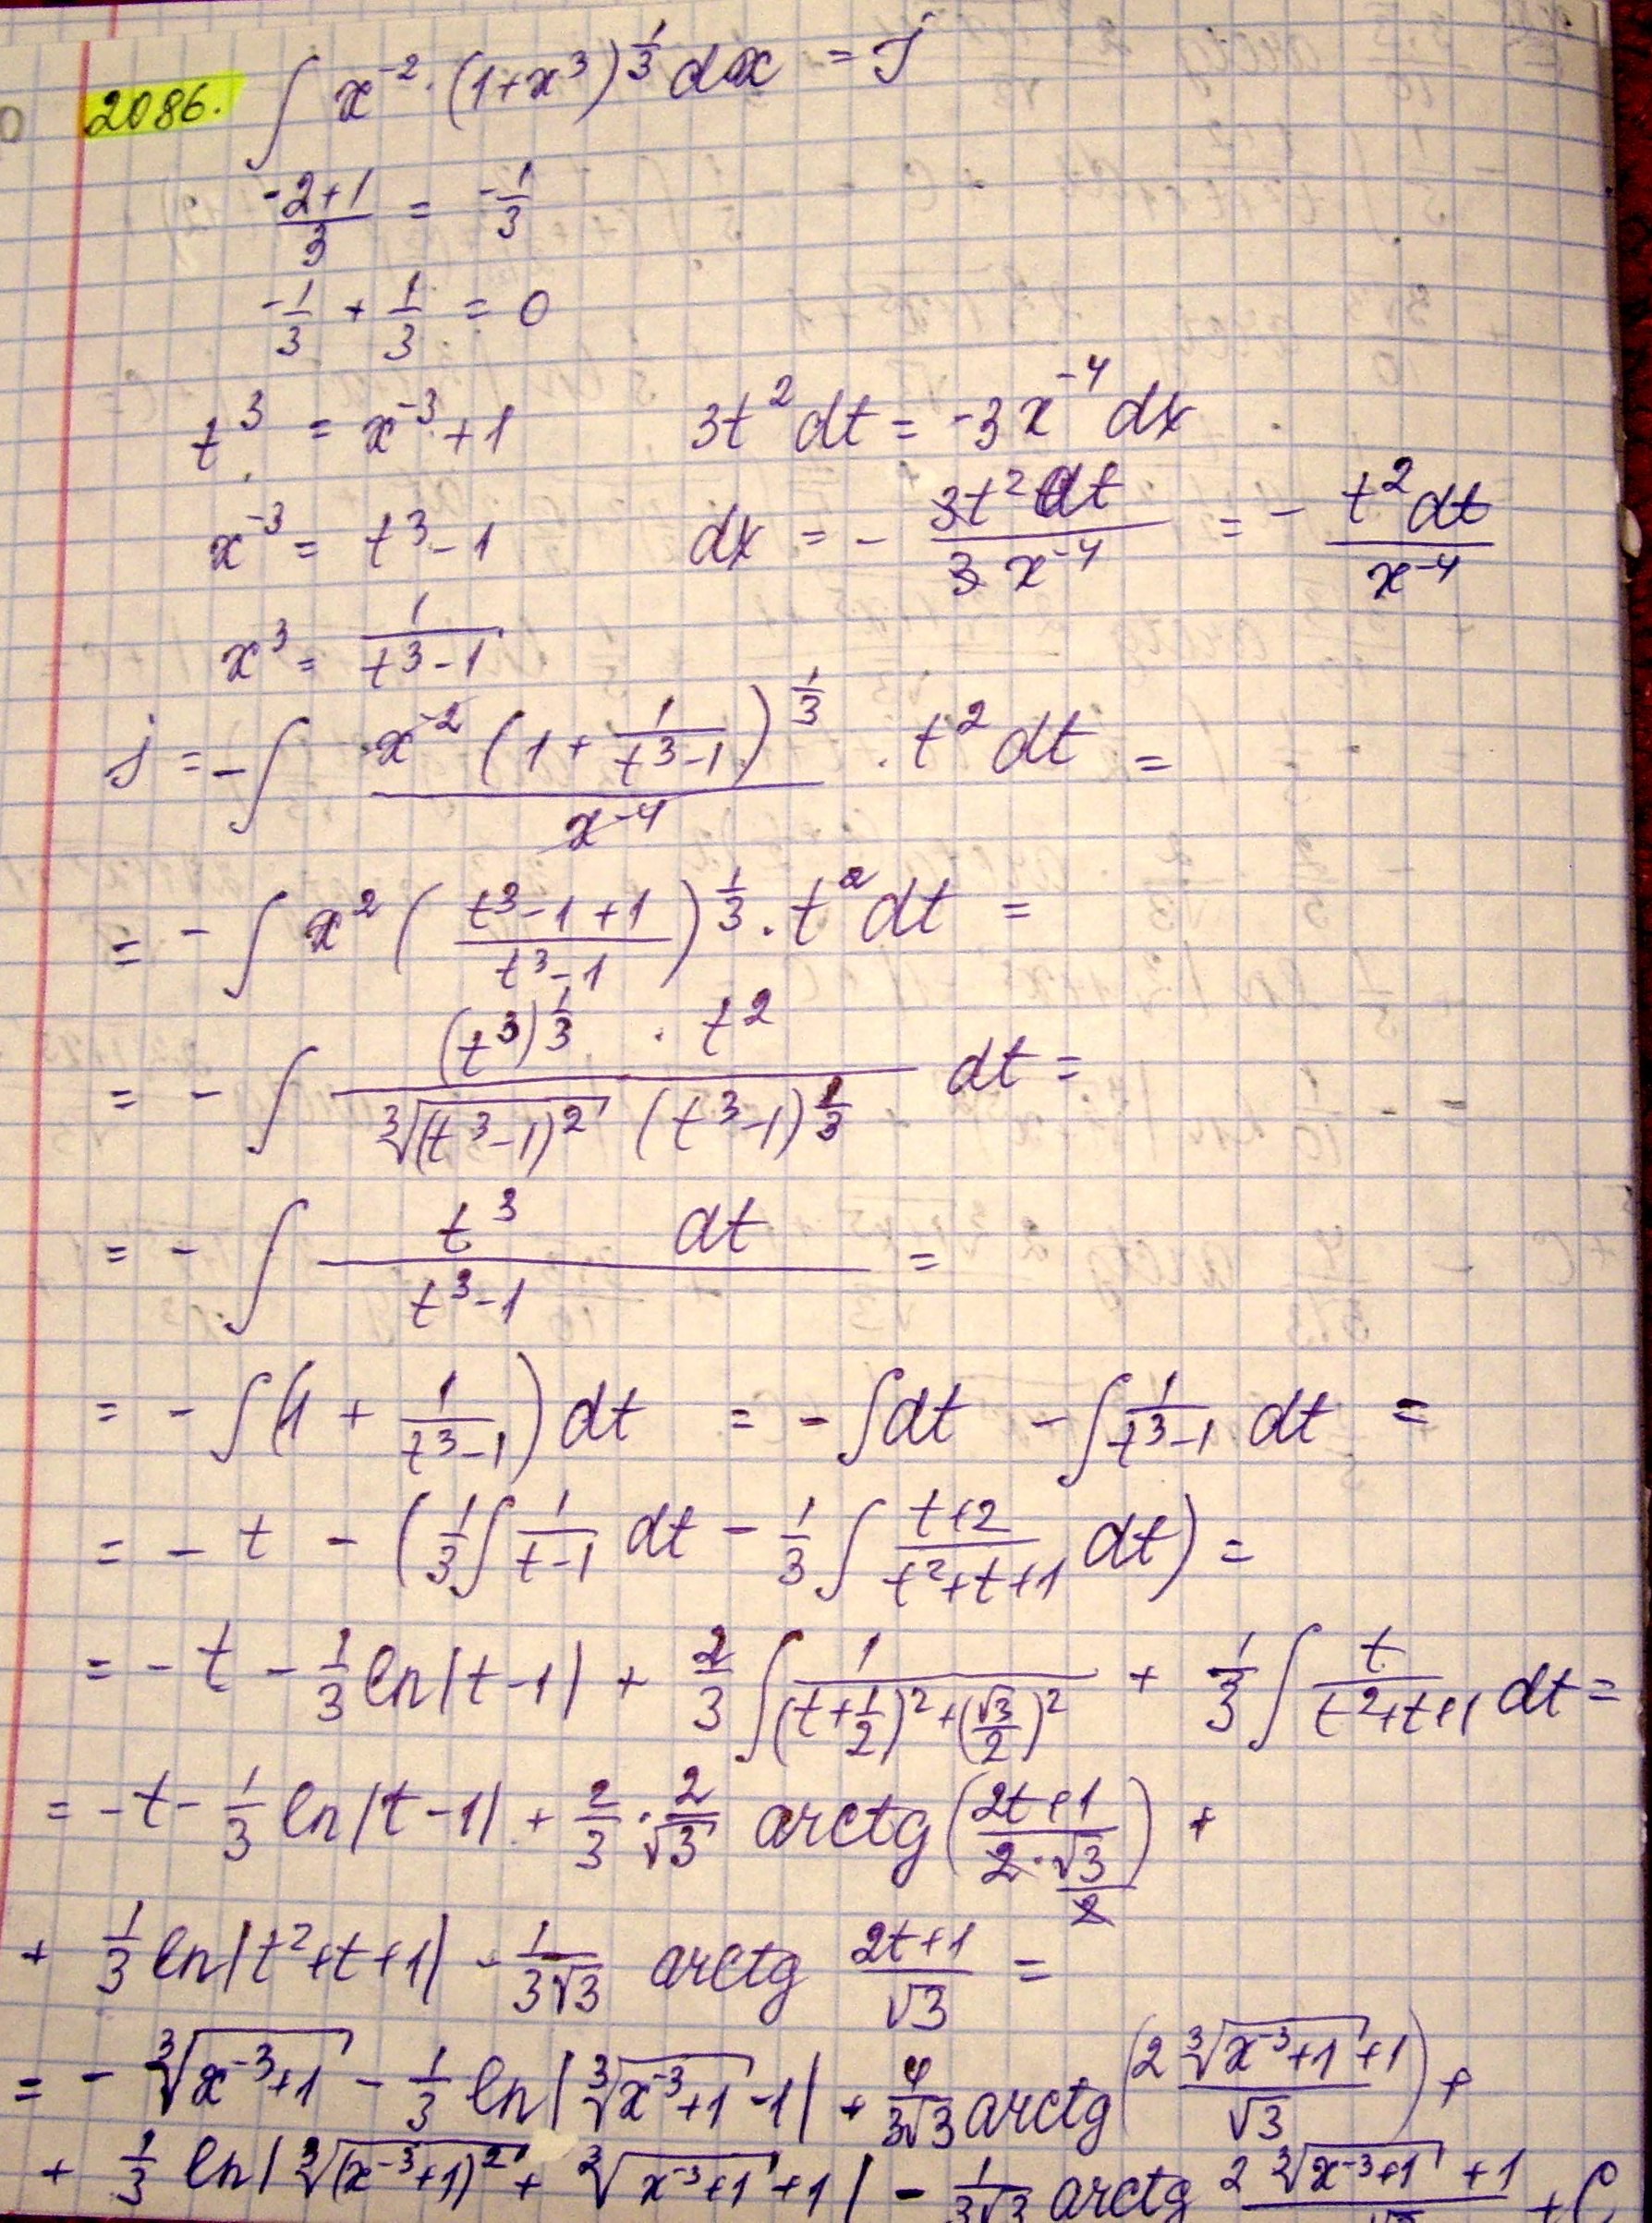 2086. ∫ x⁻² · (1+x³)^(1/3) dx = J
(-2+1)/3 = -1/3
-1/3 + 1/3 = 0
t³ = x⁻³ + 1    3t² dt = -3x⁻⁴ dx
x⁻³ = t³ - 1    dx = - 3t² dt / (3 x⁻⁴) = - t² dt / x⁻⁴
x³ = 1/(t³-1)
j = -∫ x⁻² (1 + 1/(t³-1))^(1/3) / x⁻⁴ · t² dt =
= - ∫ x² ((t³-1+1)/(t³-1))^(1/3) · t² dt =
= - ∫ (t³)^(1/3) · t² / (∛(t³-1)² (t³-1)^(1/3)) dt =
= - ∫ t³ dt / (t³-1) =
= - ∫ (1 + 1/(t³-1)) dt = - ∫ dt - ∫ 1/(t³-1) dt =
= - t - (1/3 ∫ 1/(t-1) dt - 1/3 ∫ (t+2)/(t²+t+1) dt) =
= - t - 1/3 ln|t-1| + 2/3 ∫ 1/((t+1/2)² + (√3/2)²) + 1/3 ∫ t/(t²+t+1) dt =
= -t - 1/3 ln|t-1| + 2/3 · 2/√3 arctg((2t+1)/(2·√3/2)) +
+ 1/3 ln|t²+t+1| - 1/(3√3) arctg (2t+1)/√3 =
= - ∛(x⁻³+1) - 1/3 ln|∛(x⁻³+1) - 1| + 4/(3√3) arctg((2∛(x⁻³+1) + 1)/√3) +
+ 1/3 ln|∛(x⁻³+1)² + ∛(x⁻³+1) + 1| - 1/(3√3) arctg (2∛(x⁻³+1) + 1)/√3 + C